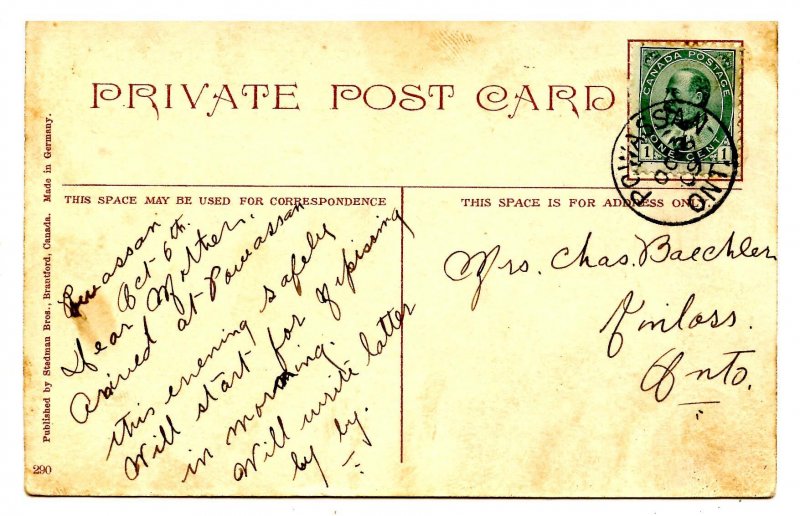 PRIVATE POST CARD
CANADA POSTAGE
ONE CENT
1 1
POWASSAN
ONT
THIS SPACE MAY BE USED FOR CORRESPONDENCE
THIS SPACE IS FOR ADDRESS ONLY
Powassan
Oct 6th.
Dear Mother.
Arrived at Powassan
this evening safely
Will start for Nipissing
in morning.
Will write latter
by by.
Mrs. Chas. Baechler
Kinloss.
Onto.
Published by Stedman Bros., Brantford, Canada. Made in Germany.
290